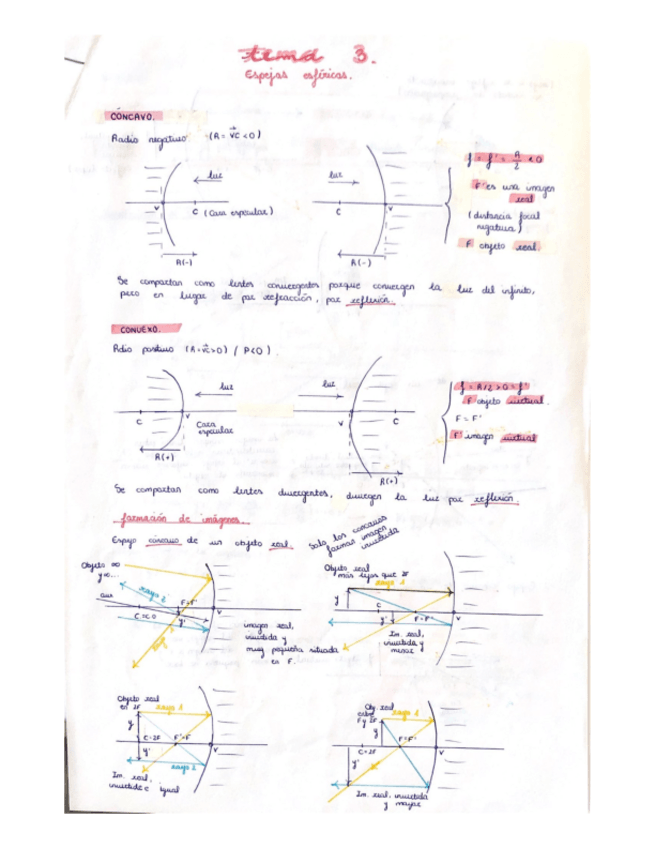 tema 3.
Espejos esféricos.
CÓNCAVO.
Radio negativo (R = VC < 0)
luz
V
C (Cara especular)
R(-)
luz
C
V
R(-)
f = f' = R/2 < 0
F' es una imagen
real
(distancia focal
negativa)
F objeto real.
Se comportan como lentes convergentes porque convergen la luz del infinito,
pero en lugar de por refracción, por reflexión.
CONVEXO.
Rdio positivo (R=VC>0) / P<0).
luz
C
V
Cara
especular
R(+)
luz
V
C
R(+)
f = R/2 > 0 = f'
F objeto virtual.
F = F'
F' imagen virtual
Se comportan como lentes divergentes, divergen la luz por reflexión.
formación de imágenes.
Espejo cóncavo de un objeto real.
Solo los cóncavos
forman imagen
invertida
Objeto ∞
y ∞
rayo 2
aux
F=F'
C
y'
V
imagen real,
invertida y
muy pequeña situada
en F.
Objeto real
más lejos que 2F
rayo 1
y
C
y'
F=F'
V
Im. real,
invertida y
menor
Objeto real
en 2F
rayo 1
y
C=2F
F'=F
V
y'
rayo 2
Im. real,
invertida e igual
Obj. real
entre
F y 2F
rayo 1
y
C=2F
F=F'
V
y'
Im. real, invertida
y mayor